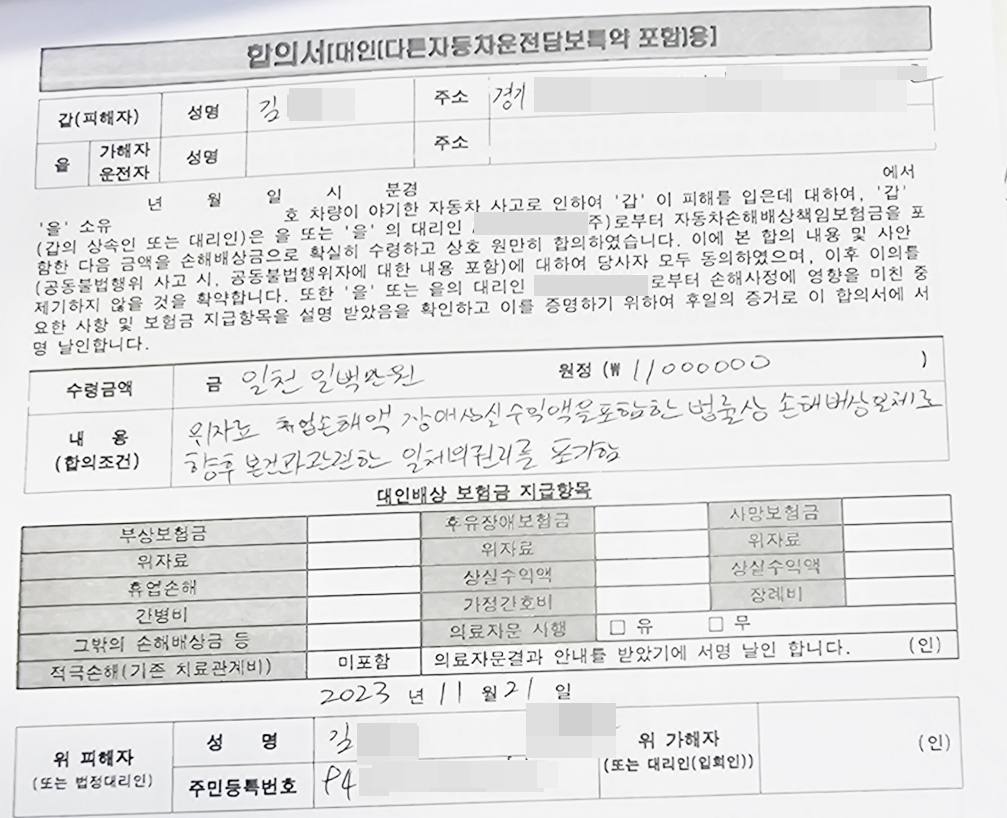 합의서[대인(다른자동차운전담보특약 포함)용]
갑(피해자) 성명 김 주소 경기
을 가해자 운전자 성명 주소
년 월 일 시 분경 에서
'을' 소유 호 차량이 야기한 자동차 사고로 인하여 '갑' 이 피해를 입은데 대하여, '갑'
(갑의 상속인 또는 대리인)은 을 또는 '을' 의 대리인 주)로부터 자동차손해배상책임보험금을 포
함한 다음 금액을 손해배상금으로 확실히 수령하고 상호 원만히 합의하였습니다. 이에 본 합의 내용 및 사안
(공동불법행위 사고 시, 공동불법행위자에 대한 내용 포함)에 대하여 당사자 모두 동의하였으며, 이후 이의를
제기하지 않을 것을 확약합니다. 또한 '을' 또는 을의 대리인 로부터 손해사정에 영향을 미친 중
요한 사항 및 보험금 지급항목을 설명 받았음을 확인하고 이를 증명하기 위하여 후일의 증거로 이 합의서에 서
명 날인합니다.
수령금액 금 일천 일백만원 원정 (₩ 11000000 )
내 용 (합의조건) 위자료 휴업손해액 장애상실수익액을포함한 법률상 손해배상일체로
향후 본건과관련한 일체의권리를 포기함
대인배상 보험금 지급항목
부상보험금 후유장애보험금 사망보험금
위자료 위자료 위자료
휴업손해 상실수익액 상실수익액
간병비 가정간호비 장례비
그밖의 손해배상금 등 의료자문 시행 □ 유 □ 무
적극손해(기존 치료관계비) 미포함 의료자문결과 안내를 받았기에 서명 날인 합니다. (인)
2023 년 11 월 21 일
위 피해자 (또는 법정대리인) 성 명 김 위 가해자 (또는 대리인(입회인)) (인)
주민등록번호 94